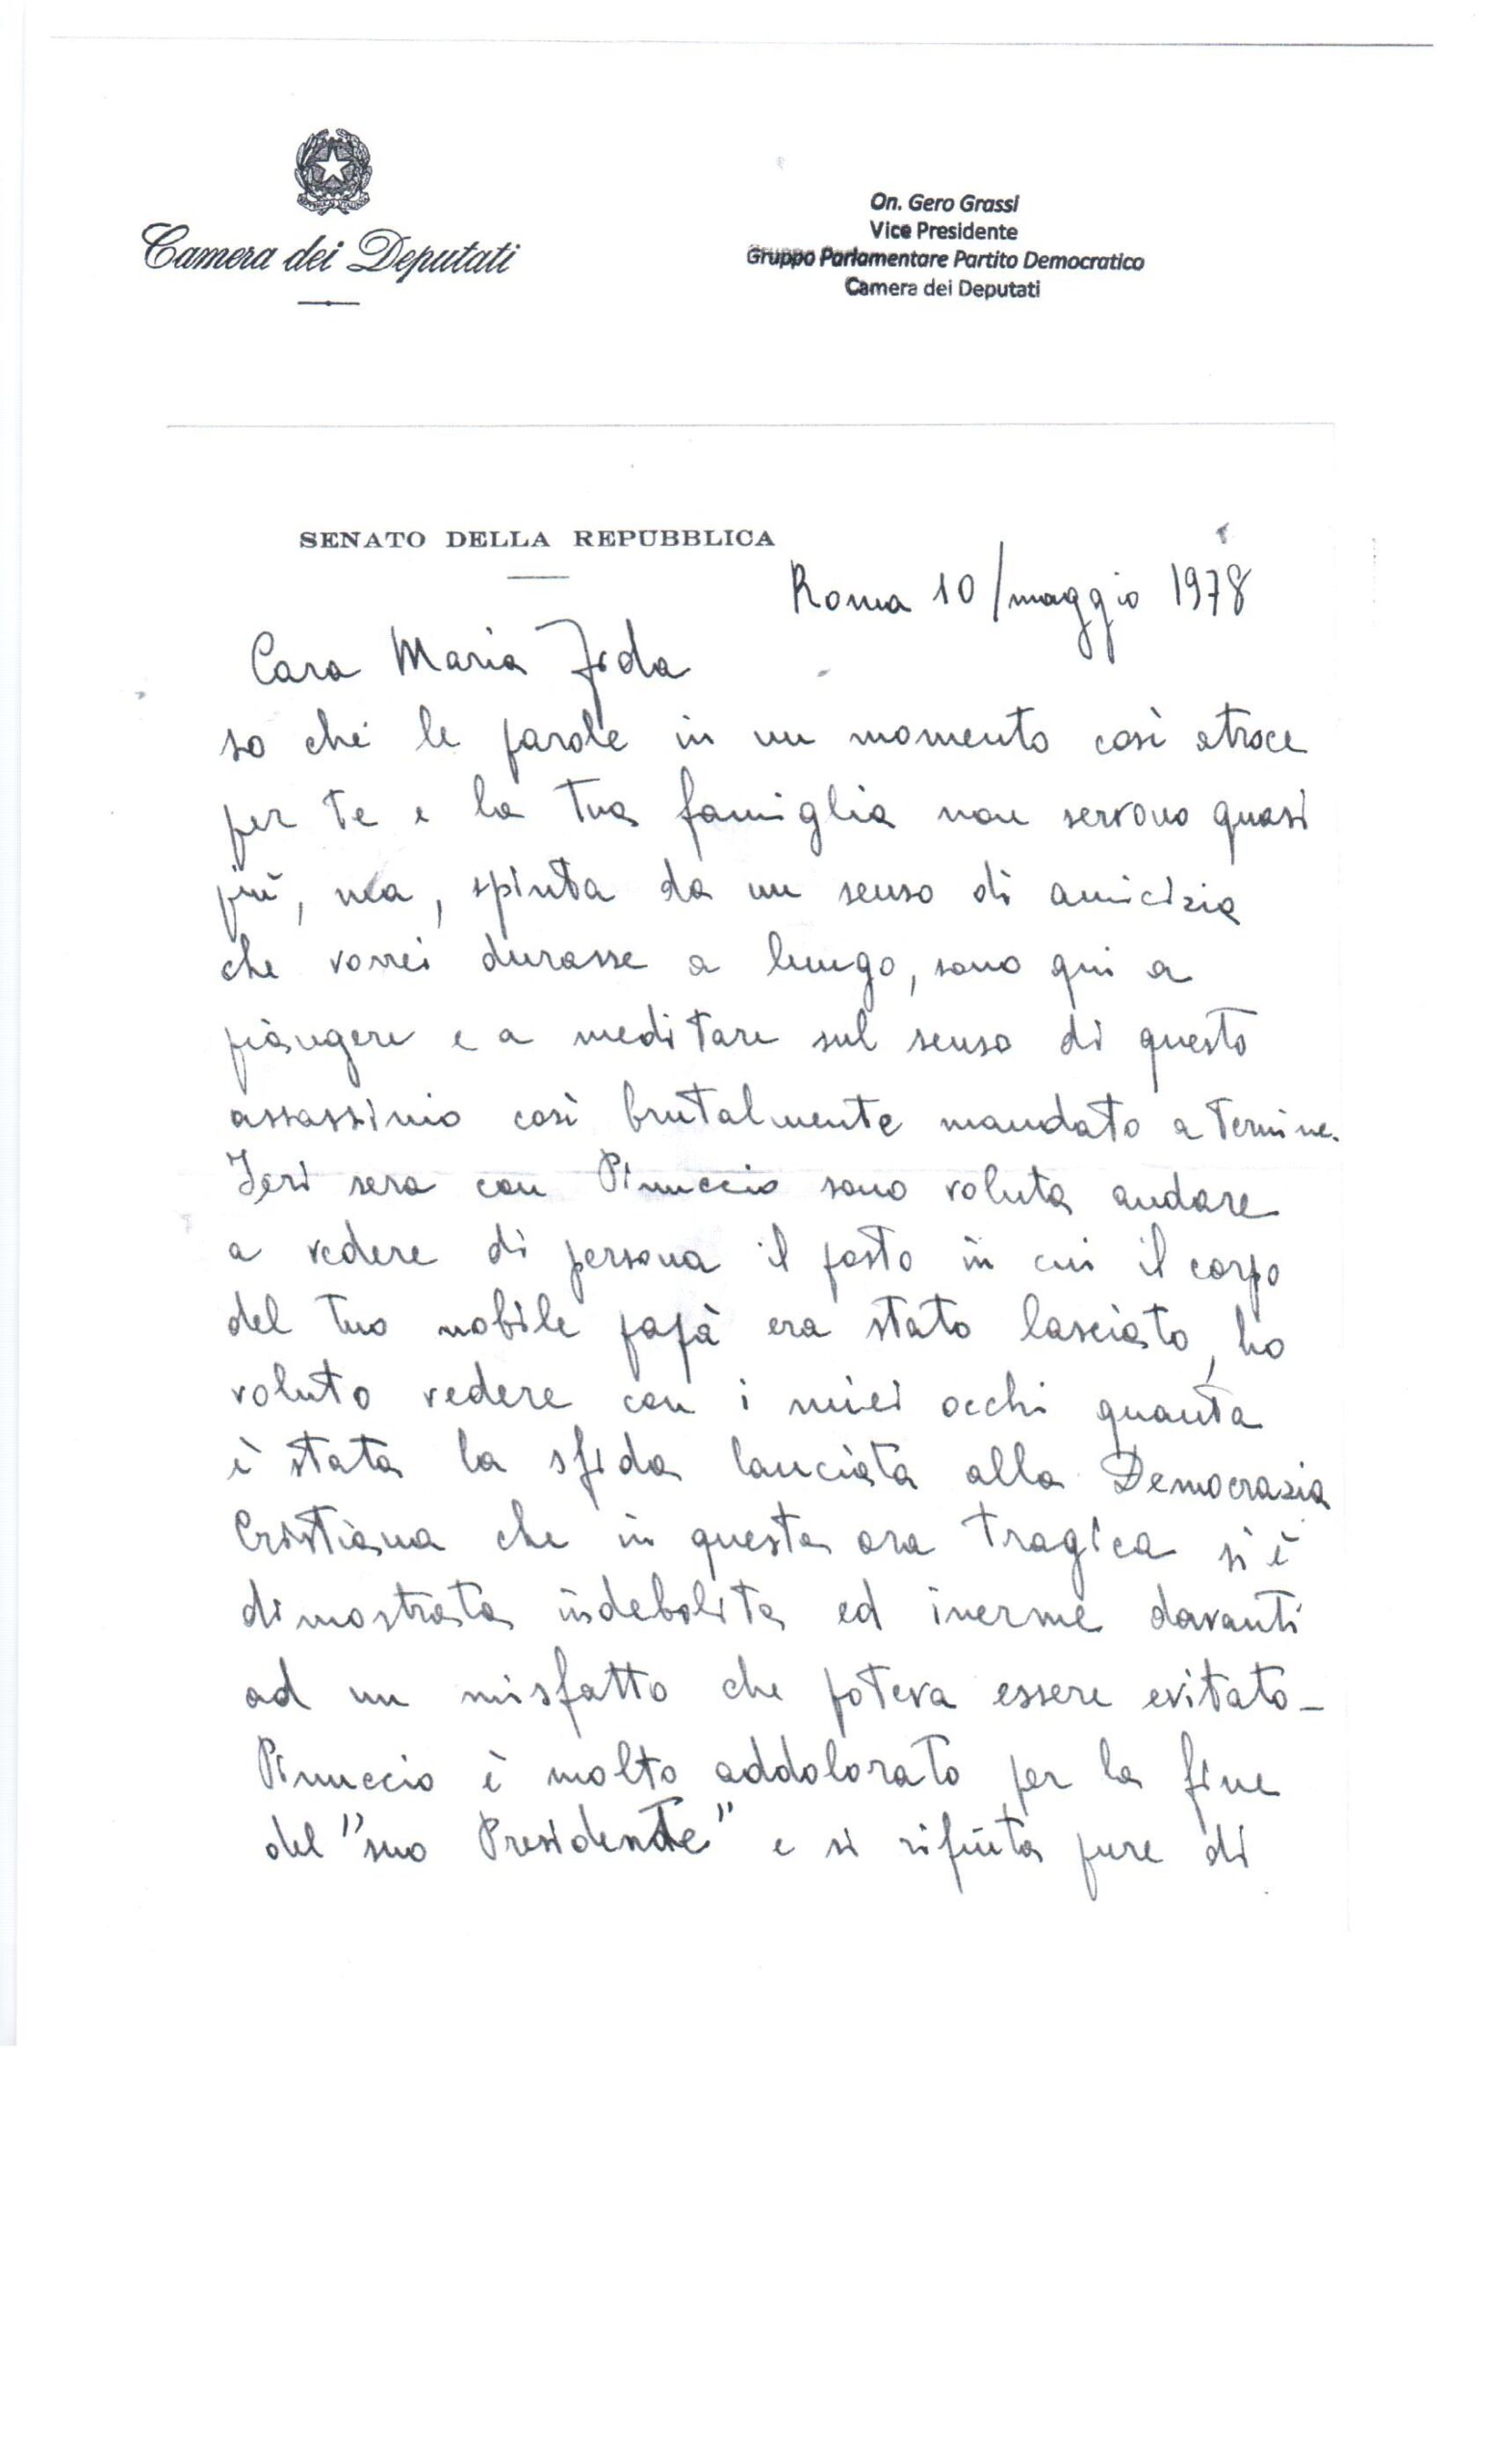 Camera dei Deputati
On. Gero Grassi
Vice Presidente
Gruppo Parlamentare Partito Democratico
Camera dei Deputati
SENATO DELLA REPUBBLICA
Roma 10/maggio 1978
Cara Maria Fida
so che le parole in un momento così atroce
per te e la tua famiglia non servono quasi
più, ma, spinta da un senso di amicizia
che vorrei durasse a lungo, sono qui a
piangere e a meditare sul senso di questo
assassinio così brutalmente mandato a termine.
Ieri sera con Pinuccio sono voluta andare
a vedere di persona il posto in cui il corpo
del tuo nobile papà era stato lasciato, ho
voluto vedere con i miei occhi quanta
è stata la sfida lanciata alla Democrazia
Cristiana che in questa ora tragica si è
dimostrata indebolita ed inerme davanti
ad un misfatto che poteva essere evitato -
Pinuccio è molto addolorato per la fine
del "suo Presidente" e si rifiuta pure di